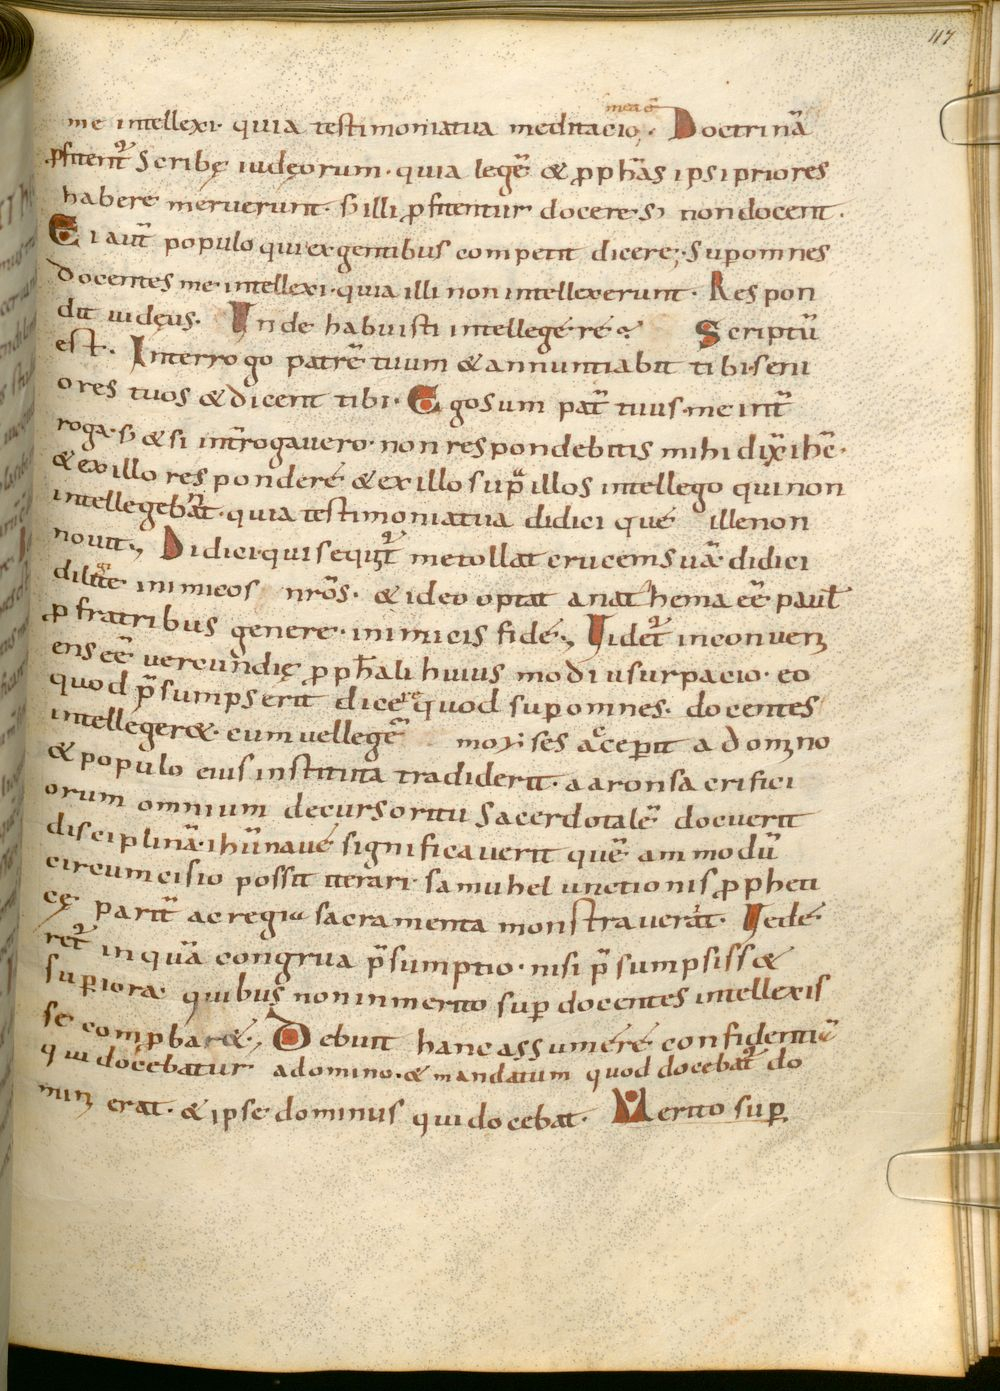 117
mea ē
me intellexi· quia testimonia tua meditacio; Doctrinā
ꝓfitent᷑ Scribę iudęorum· quia legē & ꝓphās ipsi priores
habere meruerunt· s; illi ꝓfitentur docere· s; non docent·
Ei aut̄ populo qui ex gentibus competit dicere; Sup omnes
docentes me intellexi· quia illi non intellexerunt· Respon
dit iudęus· Inde habuisti intellegere? Scriptū
est· Interrogo patrē tuum & annuntiabit tibi· seni
ores tuos & dicent tibi· Ego sum pat̄ tuus· me int̄
roga· s; & si int̄rogavero· non respondebitis mihi dix̄ ihē·
& ex illo respondere & ex illo sup̄ illos intellego qui non
intellegebant· quia testimonia tua didici que ille non
novit; Didici· qui sequit᷑ me tollat crucem suā· didici
diligite inimicos nr̄os· & ideo optat anathema eē paul̄
ꝓ fratribus genere· inimicis fide; Videt᷑ inconveni
ens eē verecundię ꝓph̄ali huius modi usurpacio· eo
quod p̄sumpserit dicere quod sup omnes· docentes
intelleger&· cum vel legē moyses acceperit a domino
& populo eius instituta tradiderit· aaron sacrifici
orum omnium decurso ritu sacerdotalē docuerit
disciplinā· ihū nave significaverit quē ammodū
circumcisio possit iterari· samuhel unctionis ꝓpheti
cę parit̄ ac regiae sacramenta monstraverat· Hede
ret᷑ in quā congrua p̄sumptio· nisi p̄sumpsiss&
superiora· quibus non inmerito sup docentes intellexis
se comꝓbar&; Debuit hanc assumere confidentiā
qui docebatur a domino· & mandatum quod docebat᷑ do
mini erat· & ipse dominus qui docebat· Merito sup